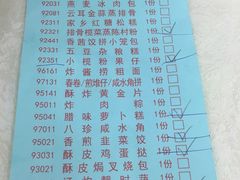 92031 燕麦冰肉包 1份
92081 云耳金蒜蒸排骨 1份
92311 家乡红糖松糕 1份
92321 排骨榄菜蒸陈村粉 1份
92441 香茜饺拼小笼包 1份
92331 五豆杂粮糕 1份
92351 小榄粉果仔 1份
96161 炸酱捞粗面 1份
97131 春卷/煎堆仔/咸水角拼 1份
95141 酥炸黄金片 1份
95011 炸肉粽 1份
95041 腊味萝卜糕 1份
97011 八珍咸水角 1份
95021 香煎韭菜饺 1份
93021 酥皮鸡蛋挞 1份
93021 酥皮焗叉烧包 1份